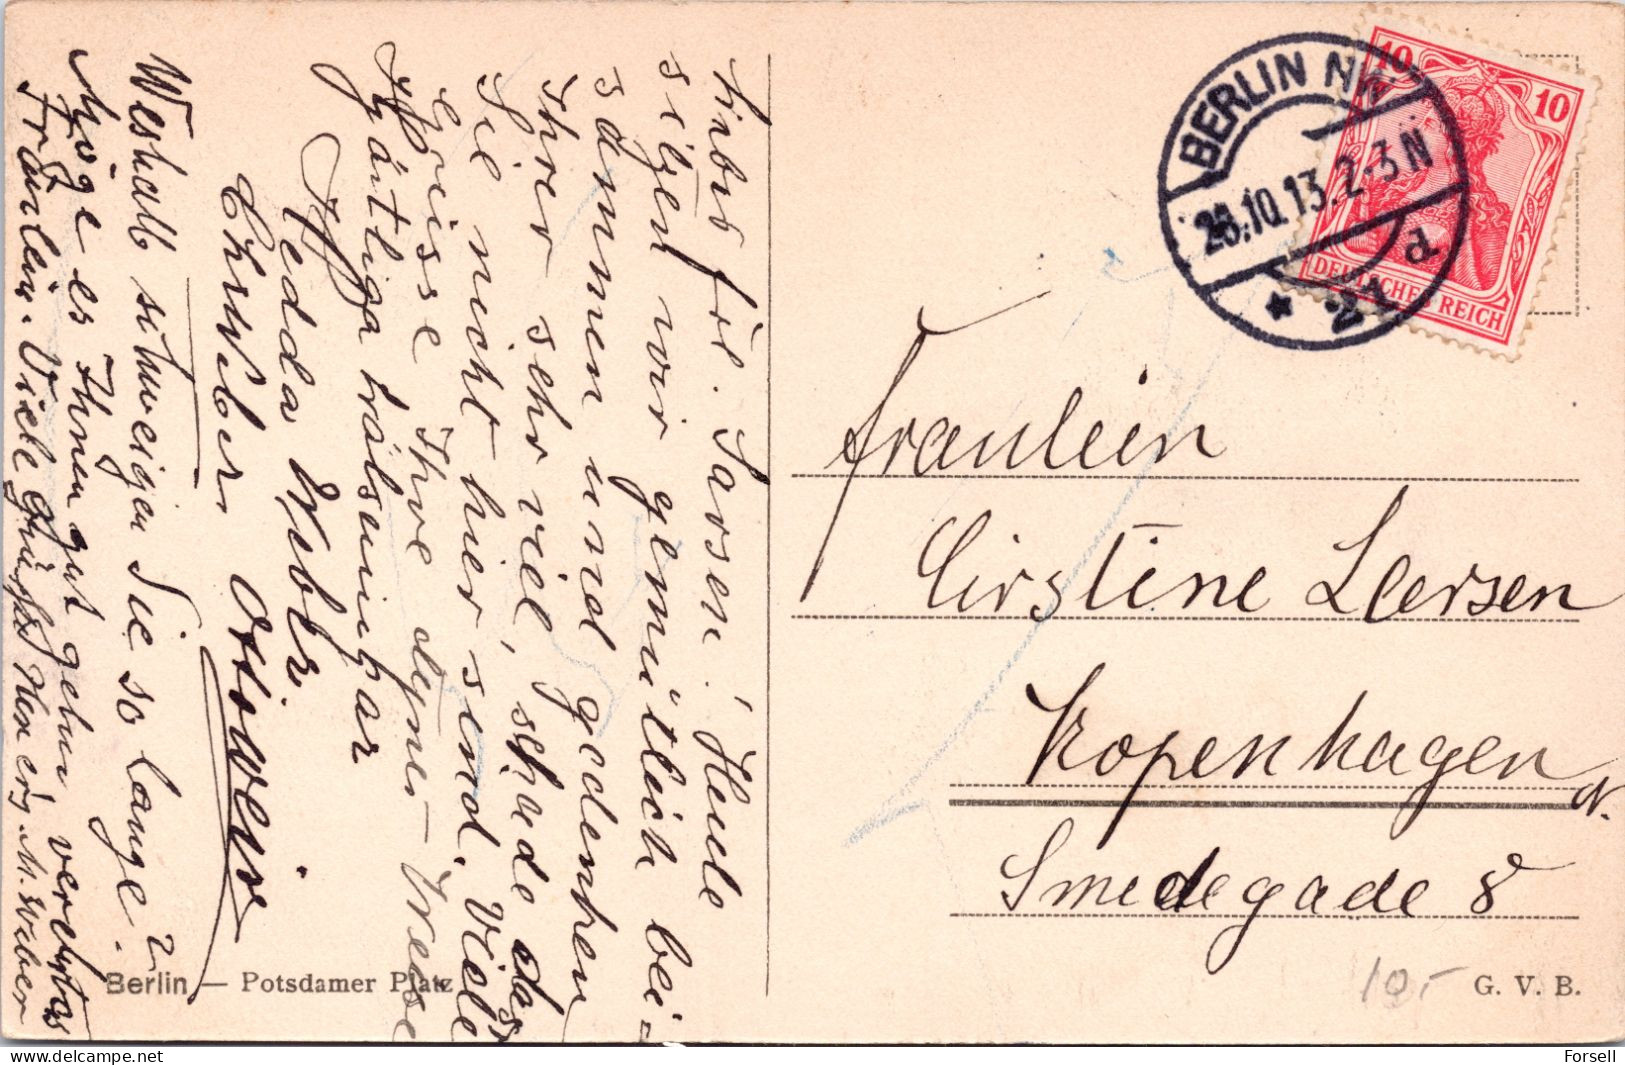 Liebes Frl. Larsen! Heute
sitzen wir gemütlich bei-
sammen und gedenken
Ihrer sehr viel, schade dass
Sie nicht hier sind. Viele
Grüsse Ihre
Hjärtliga hälsningar
Hedda Weber
Weshalb schweigen Sie so lange?
Möge es Ihnen gut gehn verehrtes
Fräulein. Viele Grüsse M. Weber
BERLIN NW.
28.10.13. 2-3 N
* 21 d
10 10
DEUTSCHES REICH
Fräulein
Cirstine Larsen
Kopenhagen N.
Smedegade 8
10,-
Berlin — Potsdamer Platz
G. V. B.
delcampe.net
Forsell